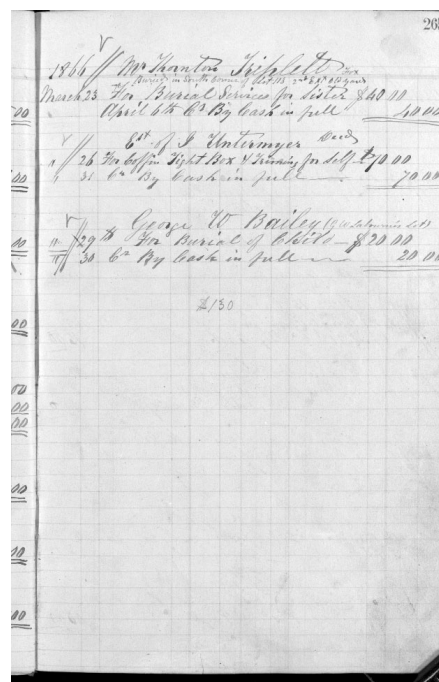 263
1866 // Mr Thornton Triplett
Buried in South corner of Lot 113 2nd Ext old yard
March 23 For Burial Services for Sister $40 00
April 6th Cr By Cash in full 40 00
Est. of I Untermyer Decd
" 26 For Coffin Tight Box & Trimming for self $70 00
" 31 Cr By Cash in full 70 00
George W Bailey
" 29th For Burial of Child $20 00
" 30 Cr By Cash in full 20 00
$130
00
00
00
00
00
00
00
00
00
00